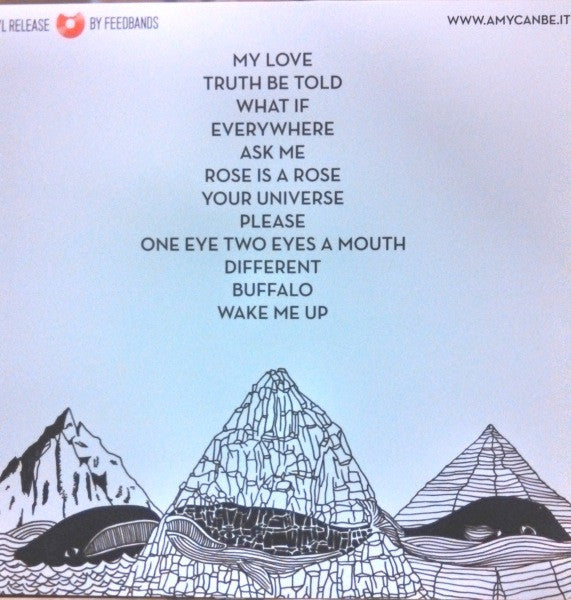 YL RELEASE BY FEEDBANDS
WWW.AMYCANBE.IT
MY LOVE
TRUTH BE TOLD
WHAT IF
EVERYWHERE
ASK ME
ROSE IS A ROSE
YOUR UNIVERSE
PLEASE
ONE EYE TWO EYES A MOUTH
DIFFERENT
BUFFALO
WAKE ME UP